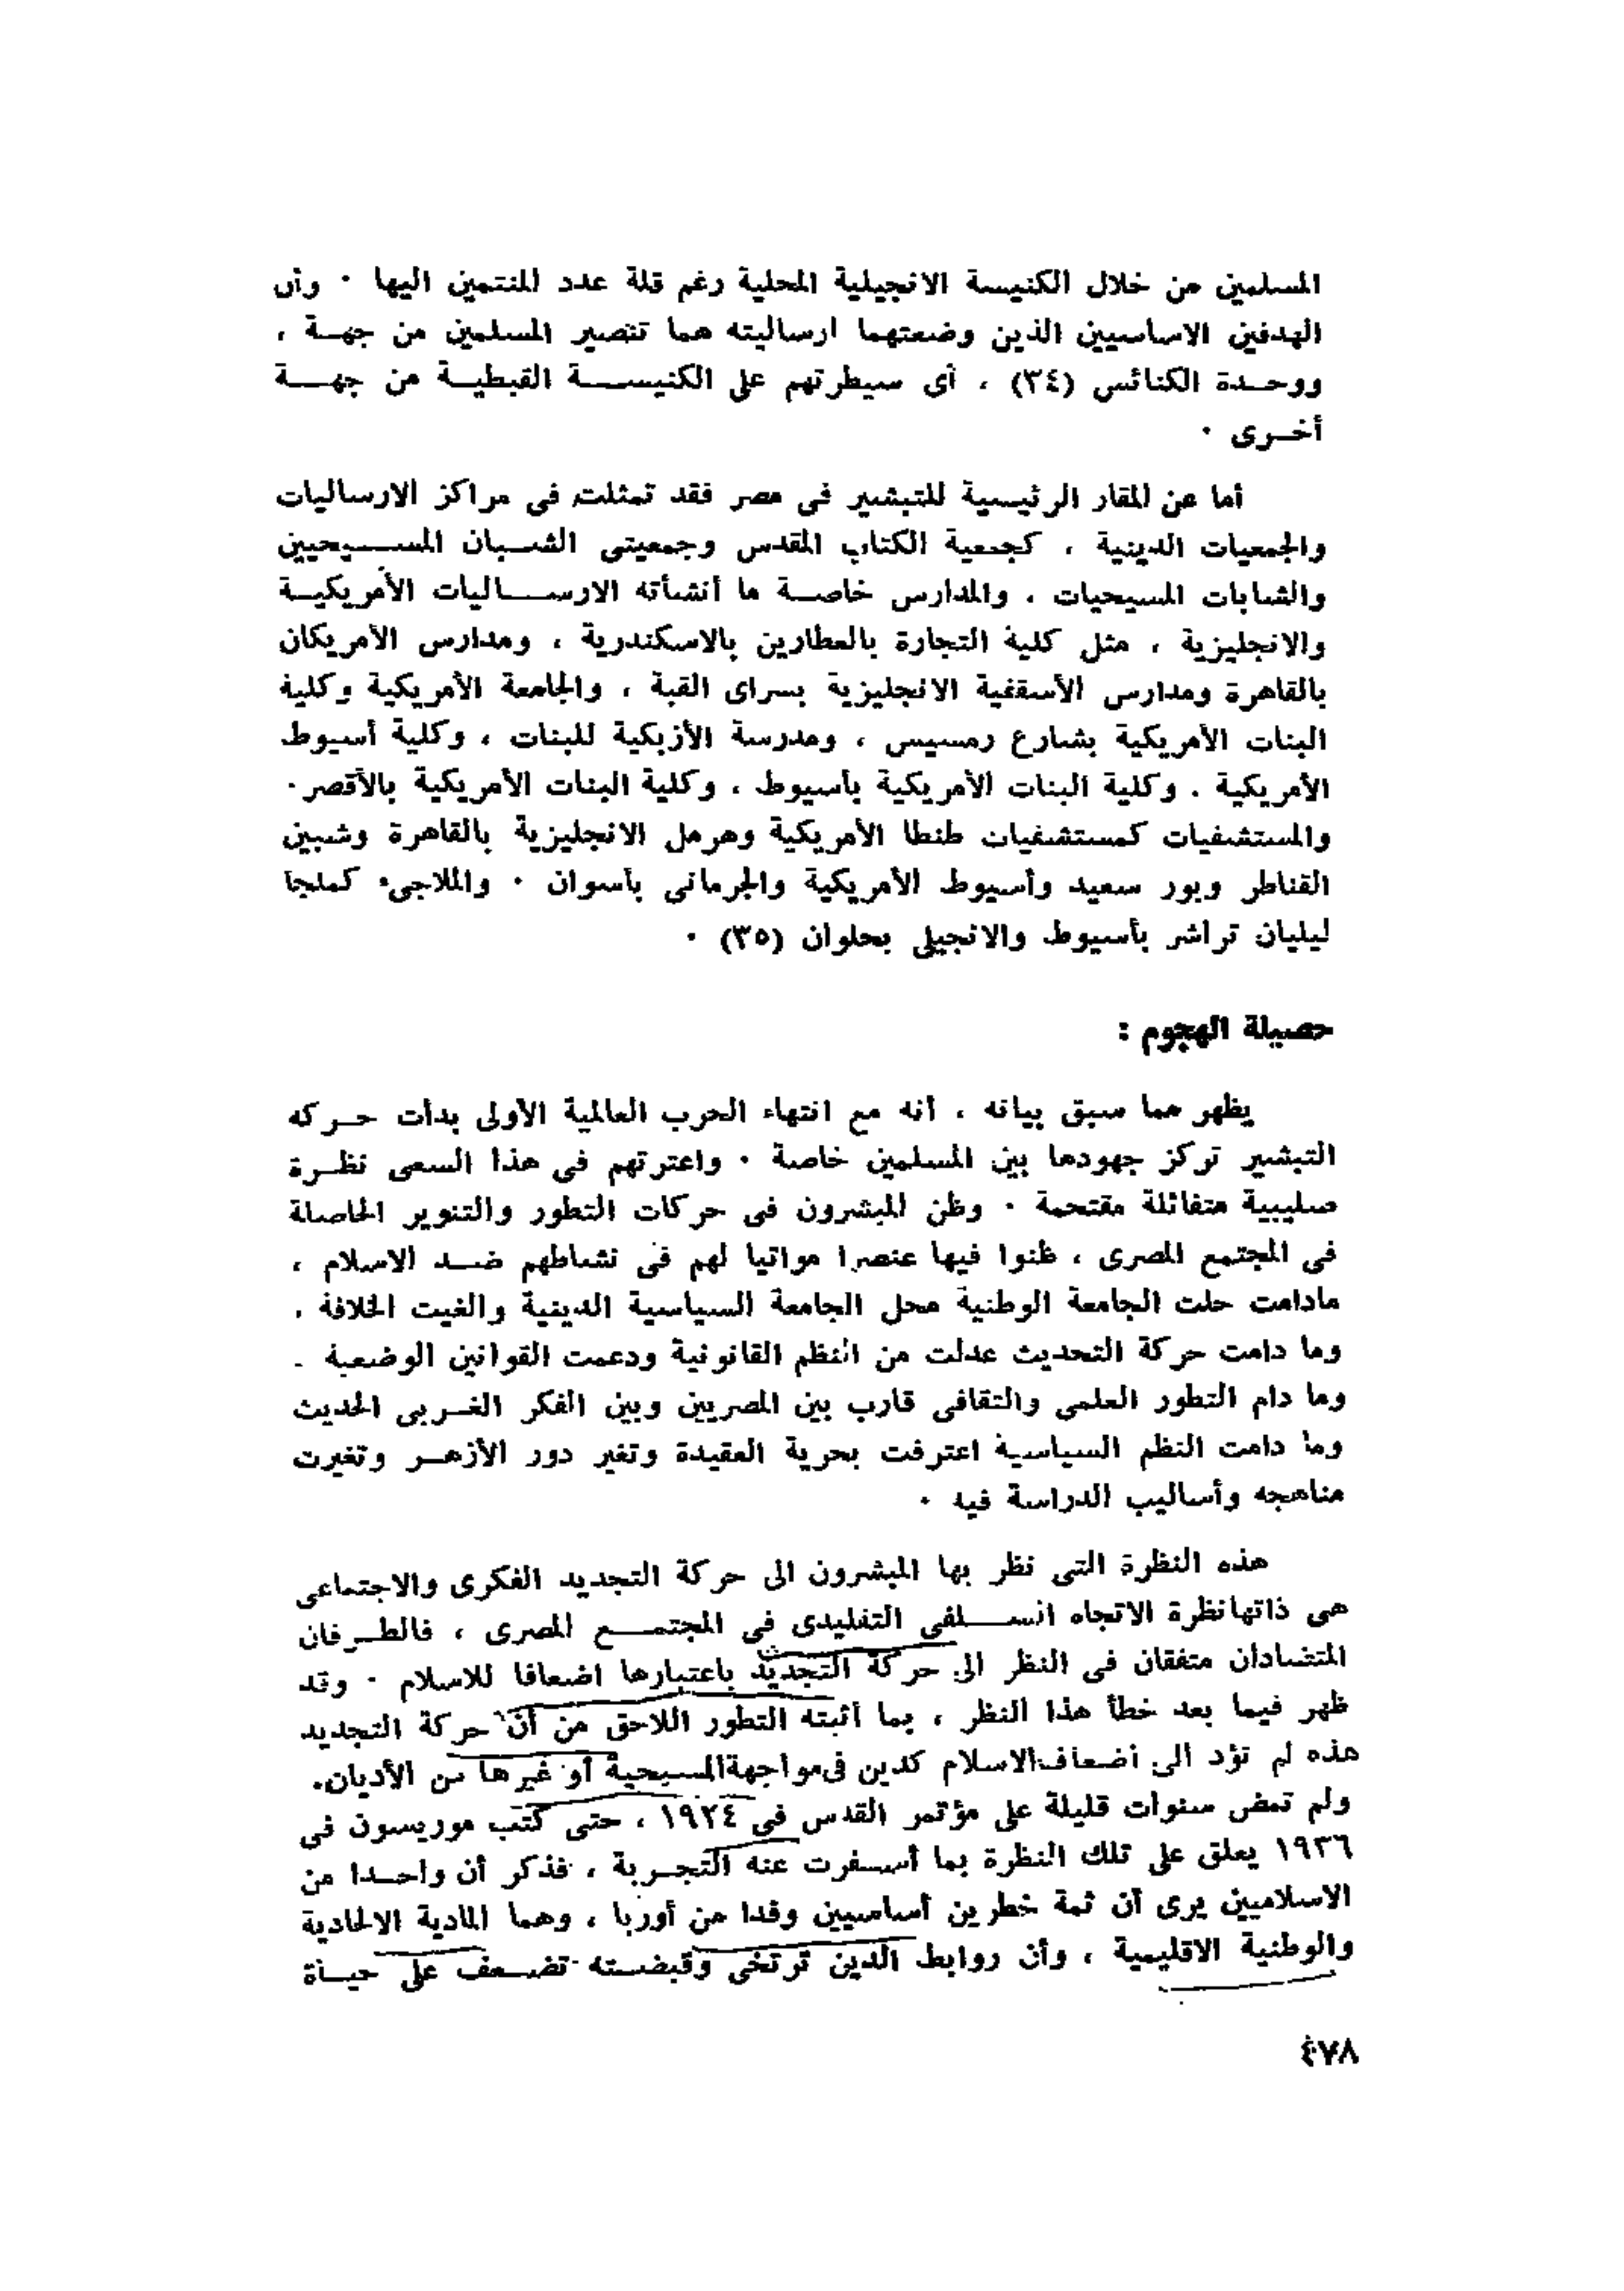 المسلمين من خلال الكنيسة الانجيلية المحلية رغم قلة عدد المنتمين اليها ٠ وأن
الهدفين الاساسيين الذين وضعتهما ارساليته هما تنصير المسلمين من جهة ،
ووحدة الكنائس (٣٤) ، أى سيطرتهم على الكنيسة القبطية من جهة
أخرى ٠
أما عن المقار الرئيسية للتبشير فى مصر فقد تمثلت فى مراكز الارساليات
والجمعيات الدينية ، كجمعية الكتاب المقدس وجمعيتى الشبان المسيحيين
والشابات المسيحيات ، والمدارس خاصة ما أنشأته الارساليات الأمريكية
والانجليزية ، مثل كلية التجارة بالعطارين بالاسكندرية ، ومدارس الأمريكان
بالقاهرة ومدارس الأسقفية الانجليزية بسراى القبة ، والجامعة الأمريكية وكلية
البنات الأمريكية بشارع رمسيس ، ومدرسة الأزبكية للبنات ، وكلية أسيوط
الأمريكية ٠ وكلية البنات الأمريكية بأسيوط ، وكلية البنات الأمريكية بالأقصر ٠
والمستشفيات كمستشفيات طنطا الأمريكية وهرمل الانجليزية بالقاهرة وشبين
القناطر وبور سعيد وأسيوط الأمريكية والجرمانى بأسوان ٠ والملاجىء كملجأ
ليليان تراشر بأسيوط والانجيلى بحلوان (٣٥) ٠
حصيلة الهجوم :
يظهر مما سبق بيانه ، أنه مع انتهاء الحرب العالمية الأولى بدأت حركه
التبشير تركز جهودها بين المسلمين خاصة ٠ واعترتهم فى هذا السعى نظرة
صليبية متفائلة مقتحمة ٠ وظن المبشرون فى حركات التطور والتنوير الحاصلة
فى المجتمع المصرى ، ظنوا فيها عنصرا مواتيا لهم فى نشاطهم ضد الاسلام ،
مادامت حلت الجامعة الوطنية محل الجامعة السياسية الدينية والغيت الخلافة ،
وما دامت حركة التحديث عدلت من النظم القانونية ودعمت القوانين الوضعية ـ
وما دام التطور العلمى والثقافى قارب بين المصريين وبين الفكر الغربى الحديث
وما دامت النظم السياسية اعترفت بحرية العقيدة وتغير دور الأزهر وتغيرت
مناهجه وأساليب الدراسة فيه ٠
هذه النظرة التى نظر بها المبشرون الى حركة التجديد الفكرى والاجتماعى
هى ذاتها نظرة الاتجاه السلفى التقليدى فى المجتمع المصرى ، فالطرفان
المتضادان متفقان فى النظر الى حركة التجديد باعتبارها اضعافا للاسلام ٠ وقد
ظهر فيما بعد خطأ هذا النظر ، بما أثبته التطور اللاحق من أن حركة التجديد
هذه لم تؤد الى اضعاف الاسلام كدين فى مواجهة المسيحية أو غيرها من الأديان.
ولم تمض سنوات قليلة على مؤتمر القدس فى ١٩٢٤ ، حتى كتب موريسون فى
١٩٣٦ يعلق على تلك النظرة بما أسفرت عنه التجربة ، فذكر أن واحدا من
الاسلاميين يرى أن ثمة خطرين أساسيين وفدا من أوربا ، وهما المادية الالحادية
والوطنية الاقليمية ، وأن روابط الدين ترتخى وقبضته تضعف على حياة
٤٧٨